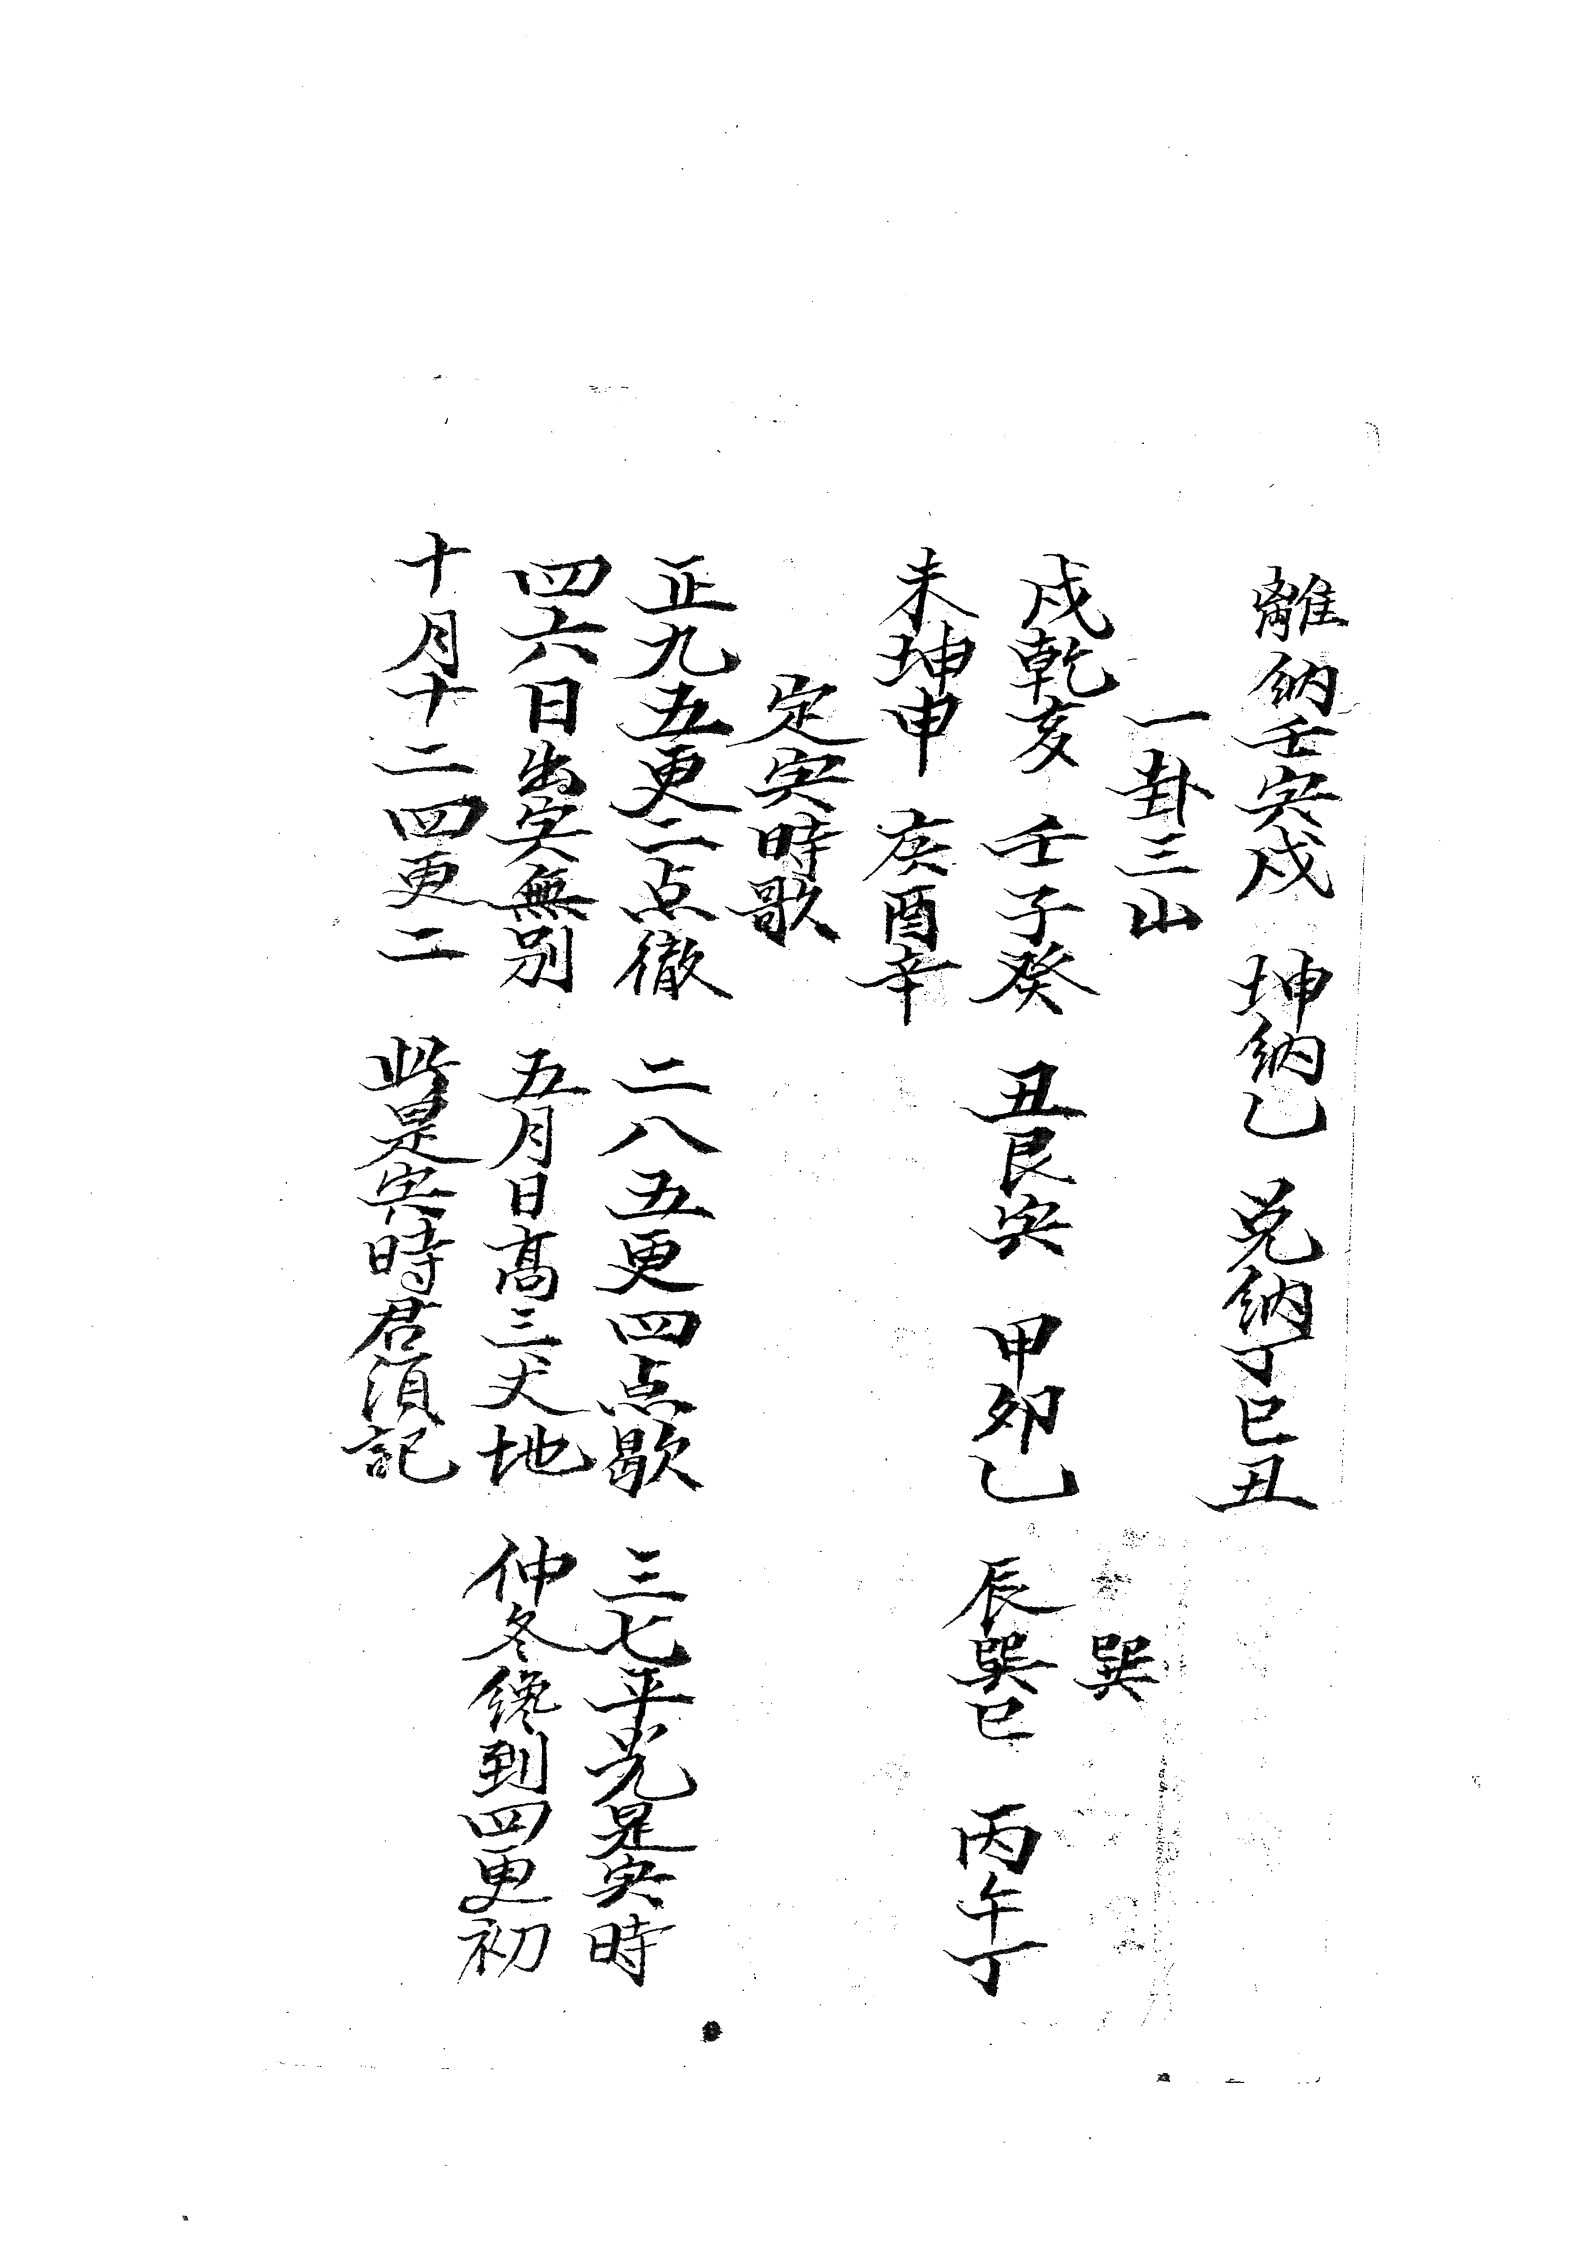 離納壬寅戌　坤納乙　兌納丁巳丑
一卦三山
巽
戌乾亥　壬子癸　丑艮寅　甲卯乙　辰巽巳　丙午丁
未坤申　庚酉辛
定寅時歌
正九五更二点徹　二八五更四点歇　三七平光是寅時
四六日出寅無別　五月日高三丈地　仲冬纔到四更初
十月十二四更二　此是寅時君須記